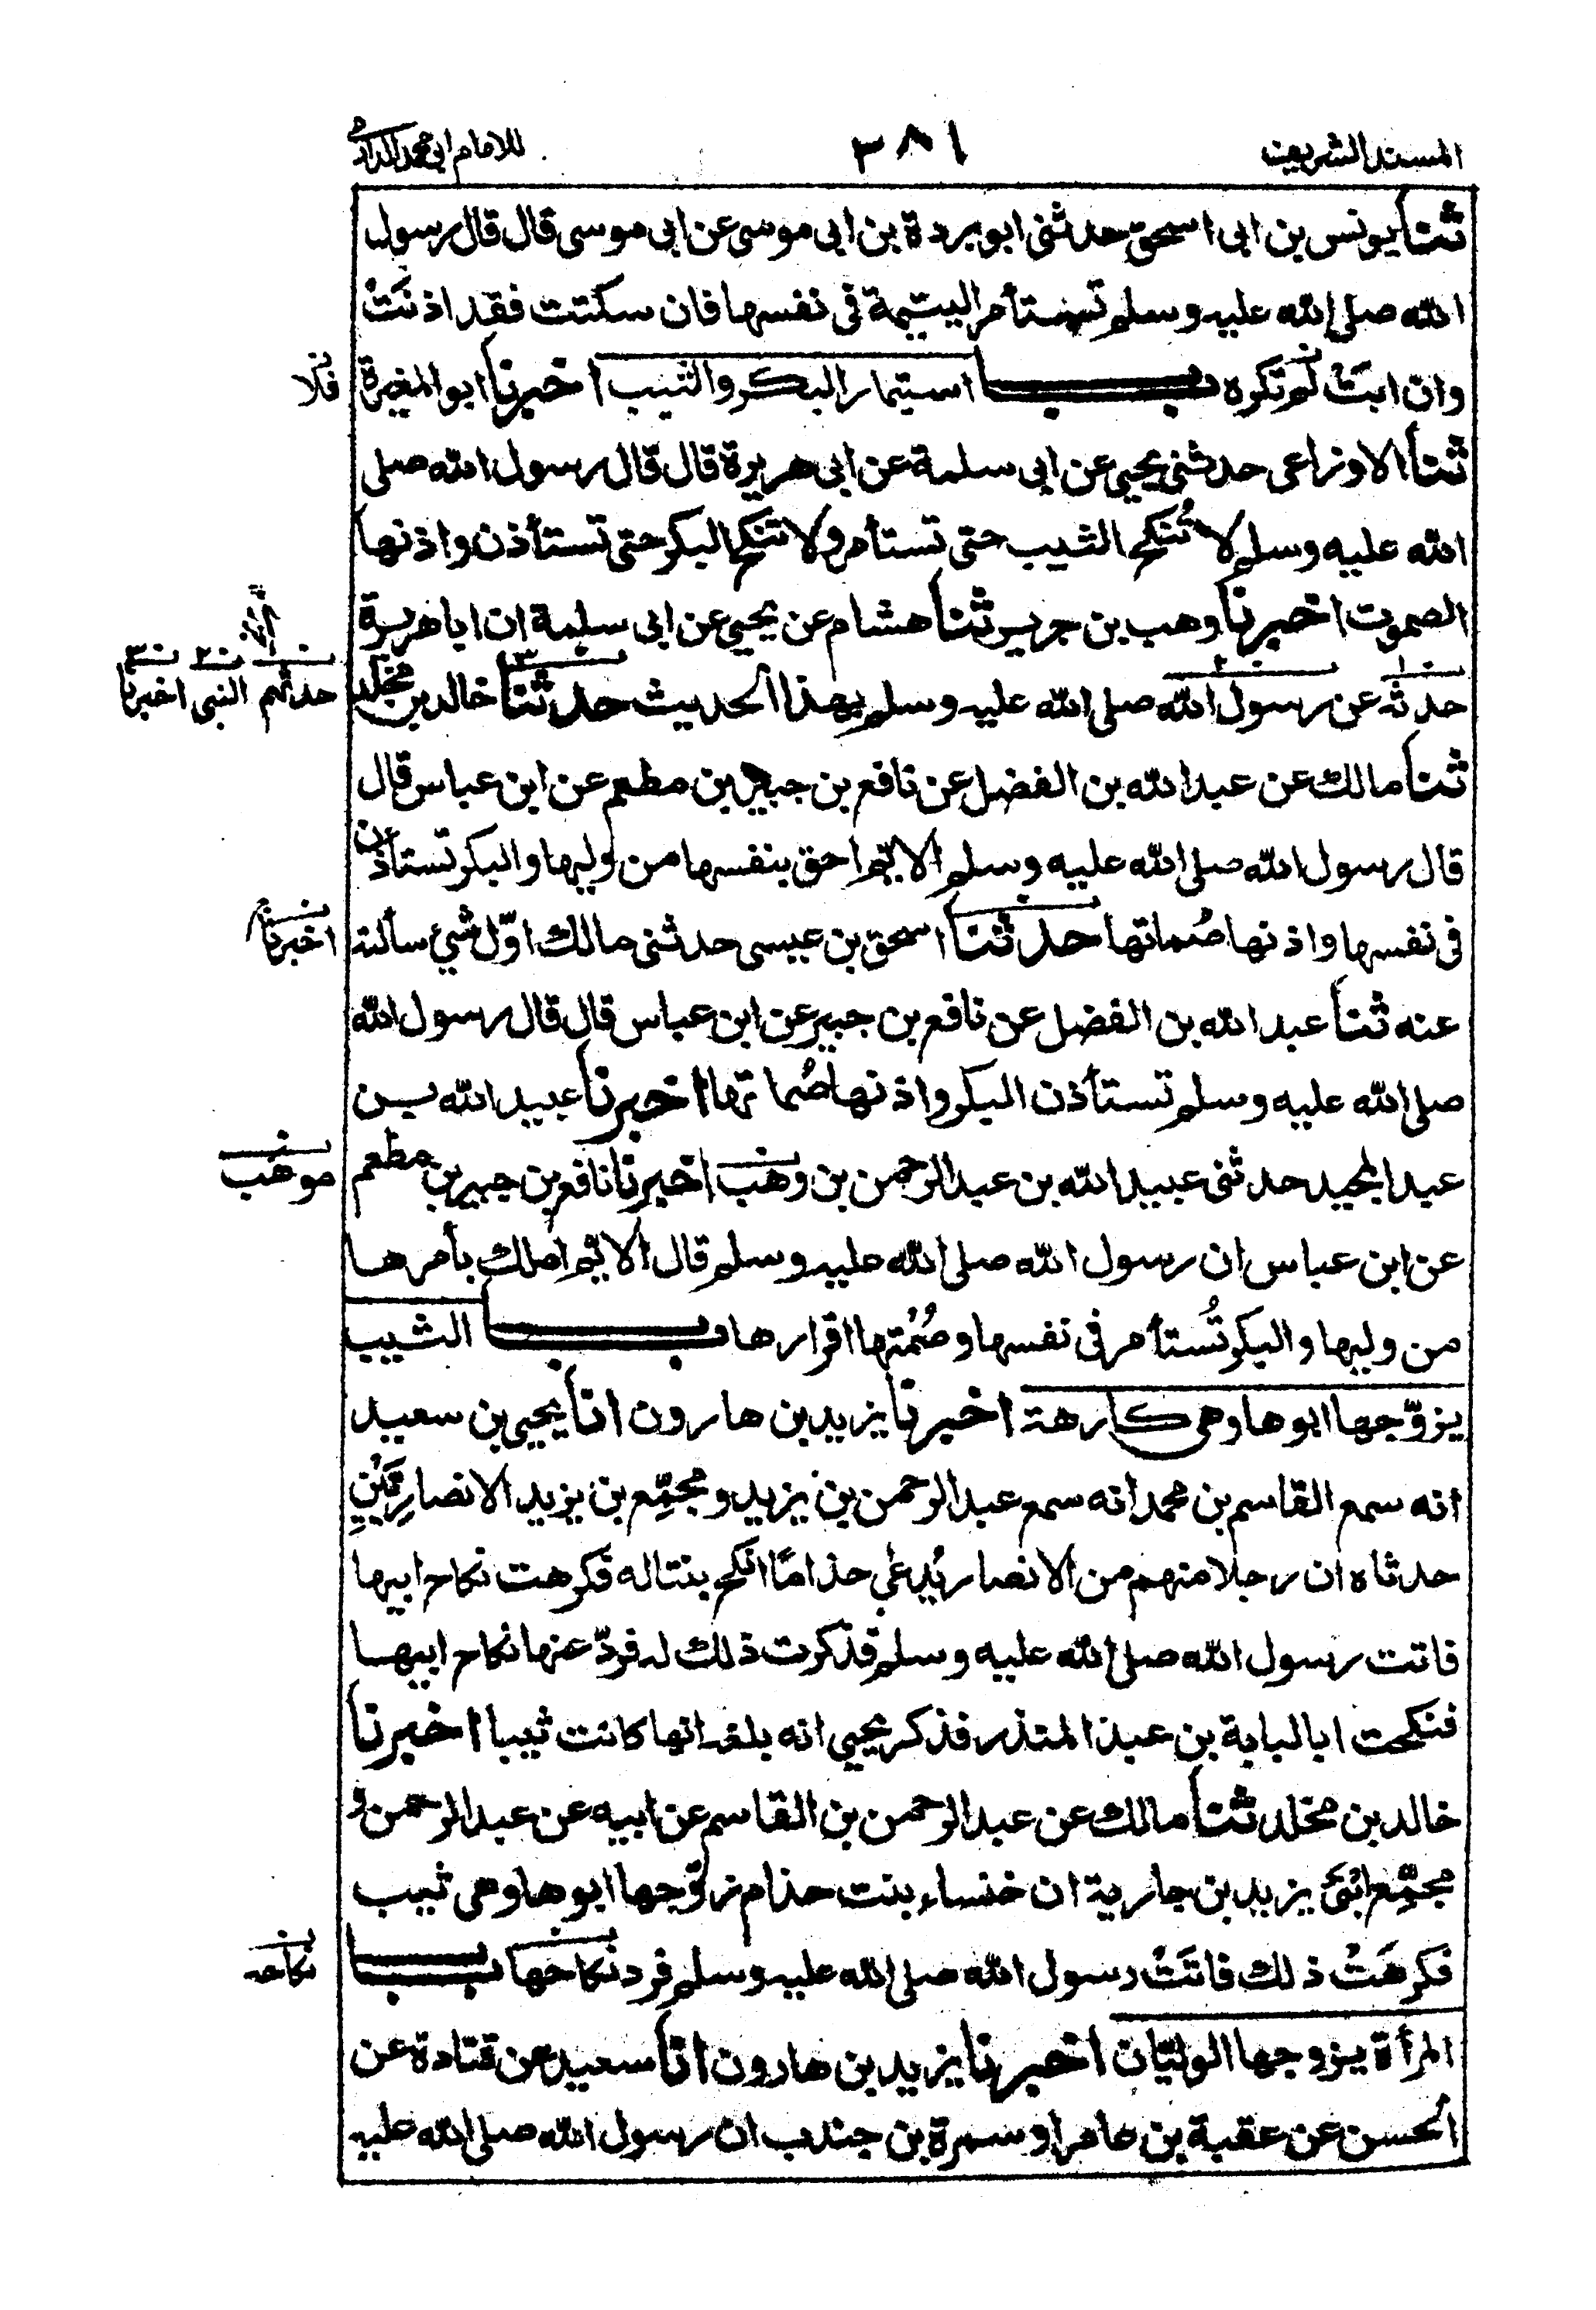 المسند الشريف ٣٨١ للامام ابي محمد الدارمي
ثنا يونس بن ابي اسحق حدثني ابو بردة بن ابي موسى عن ابي موسى قال قال رسول
الله صلى الله عليه وسلم تستأمر اليتيمة في نفسها فان سكتت فقد اذنت
وان ابت لم تكره باب استيمار البكر والثيب اخبرنا ابو المغيرة
فلا
ثنا الاوزاعي حدثني يحيى عن ابي سلمة عن ابي هريرة قال قال رسول الله صلى
الله عليه وسلم لا تُنكح الثيب حتى تستأمر ولا تنكح البكر حتى تستأذن واذنها
الصموت اخبرنا وهب بن جرير ثنا هشام عن يحيى عن ابي سلمة ان ابا هريرة
حدثه عن رسول الله صلى الله عليه وسلم بهذا الحديث حدثنا خالد بن مخلد
حدثهم النبي اخبرنا
ثنا مالك عن عبد الله بن الفضل عن نافع بن جبير بن مطعم عن ابن عباس قال
قال رسول الله صلى الله عليه وسلم الايّم احق بنفسها من وليها والبكر تستأذن
في نفسها واذنها صُماتها حدثنا اسحق بن عيسى حدثني مالك اوّل شيء سألته
اخبرنا
عنه ثنا عبد الله بن الفضل عن نافع بن جبير عن ابن عباس قال قال رسول الله
صلى الله عليه وسلم تستأذن البكر واذنها صُماتها اخبرنا عبيد الله بن
عبد المجيد حدثني عبيد الله بن عبد الرحمن بن وهب اخبرنا نافع بن جبير بن مطعم
موهب
عن ابن عباس ان رسول الله صلى الله عليه وسلم قال الايّم املك بأمرها
من وليها والبكر تُستأمر في نفسها وصُمتها اقرارها باب الثيب
يزوّجها ابوها وهي كارهة اخبرنا يزيد بن هارون انا يحيى بن سعيد
انه سمع القاسم بن محمد انه سمع عبد الرحمن بن يزيد ومجمّع بن يزيد الانصاريّين
حدثاه ان رجلا منهم من الانصار يُدعى حذاما انكح بنتا له فكرهت نكاح ابيها
فاتت رسول الله صلى الله عليه وسلم فذكرت ذلك له فردّ عنها نكاح ابيها
فنكحت ابا لبابة بن عبد المنذر فذكر يحيى انه بلغه انها كانت ثيبا اخبرنا
خالد بن مخلد ثنا مالك عن عبد الرحمن بن القاسم عن ابيه عن عبد الرحمن و
مجمّع ابني يزيد بن جارية ان خنساء بنت حذام زوّجها ابوها وهي ثيب
فكرهَتْ ذلك فاتَتْ رسول الله صلى الله عليه وسلم فرد نكاحها باب
نكاحه
المرأة يزوجها الوليّان اخبرنا يزيد بن هارون انا سعيد عن قتادة عن
الحسن عن عقبة بن عامر او سمرة بن جندب ان رسول الله صلى الله عليه